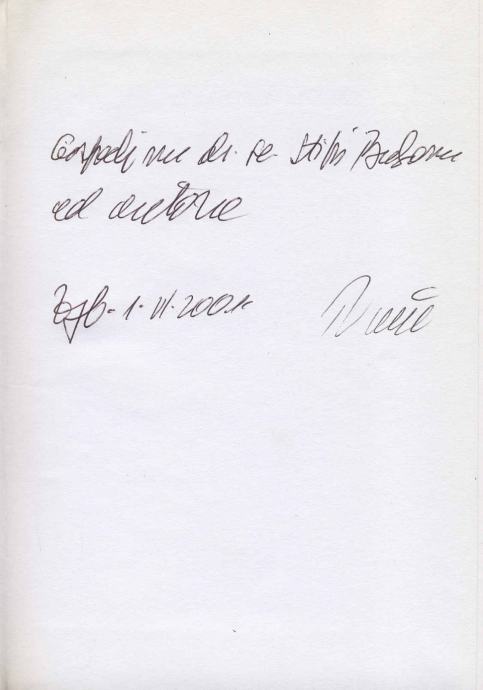 Gospodinu dr. sc. Stipi
od autora
Zgb. 1. VI. 2001.